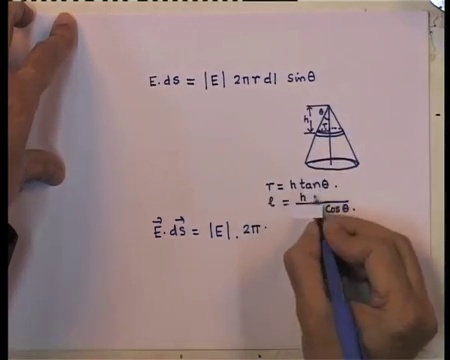 E.ds = |E| 2πr dl sinθ
θ
h
r
r = h tanθ.
l = h / cosθ.
E⃗.ds⃗ = |E| . 2π.